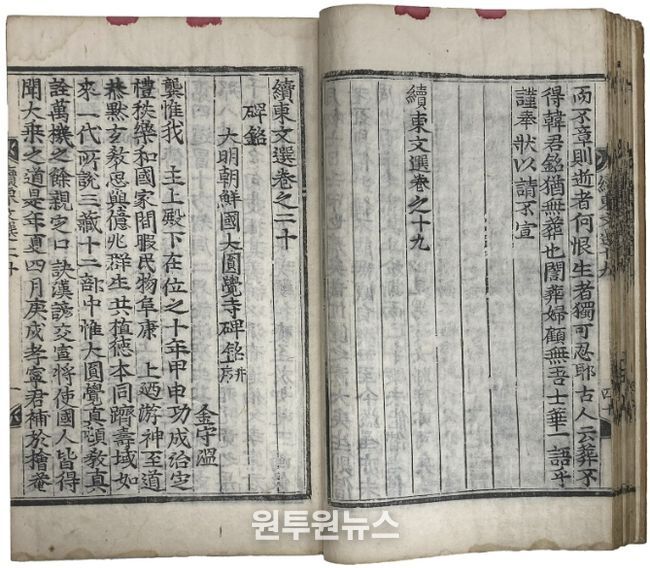 而不章則逝者何恨生者獨可忍耶古人云葬不
得韓君銘猶無葬也闇葬婦顧無吾士華一語乎
謹奉狀以請不宣
續東文選卷之十九
續東文選十九
續東文選卷之二十
碑銘
大明朝鮮國大圓覺寺碑銘 并序
金守溫
龔惟我 主上殿下在位之十年甲申功成治定
禮秩樂和國家間暇民物阜康 上迺游神至道
恭默玄教思與億兆群生共植德本同躋壽域如
來一代所說三藏十二部中惟大圓覺真頓教真
詮萬機之餘親定口訣漢諺交宣將使國人皆得
聞大乗之道是年夏四月庚戌孝寧君補於檜菴
續東文選二十
원투원뉴스